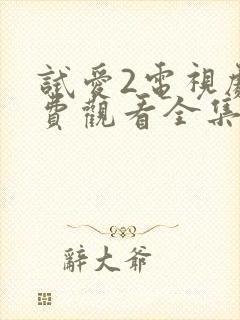 試愛2電視劇
費觀看全集
辭大爺